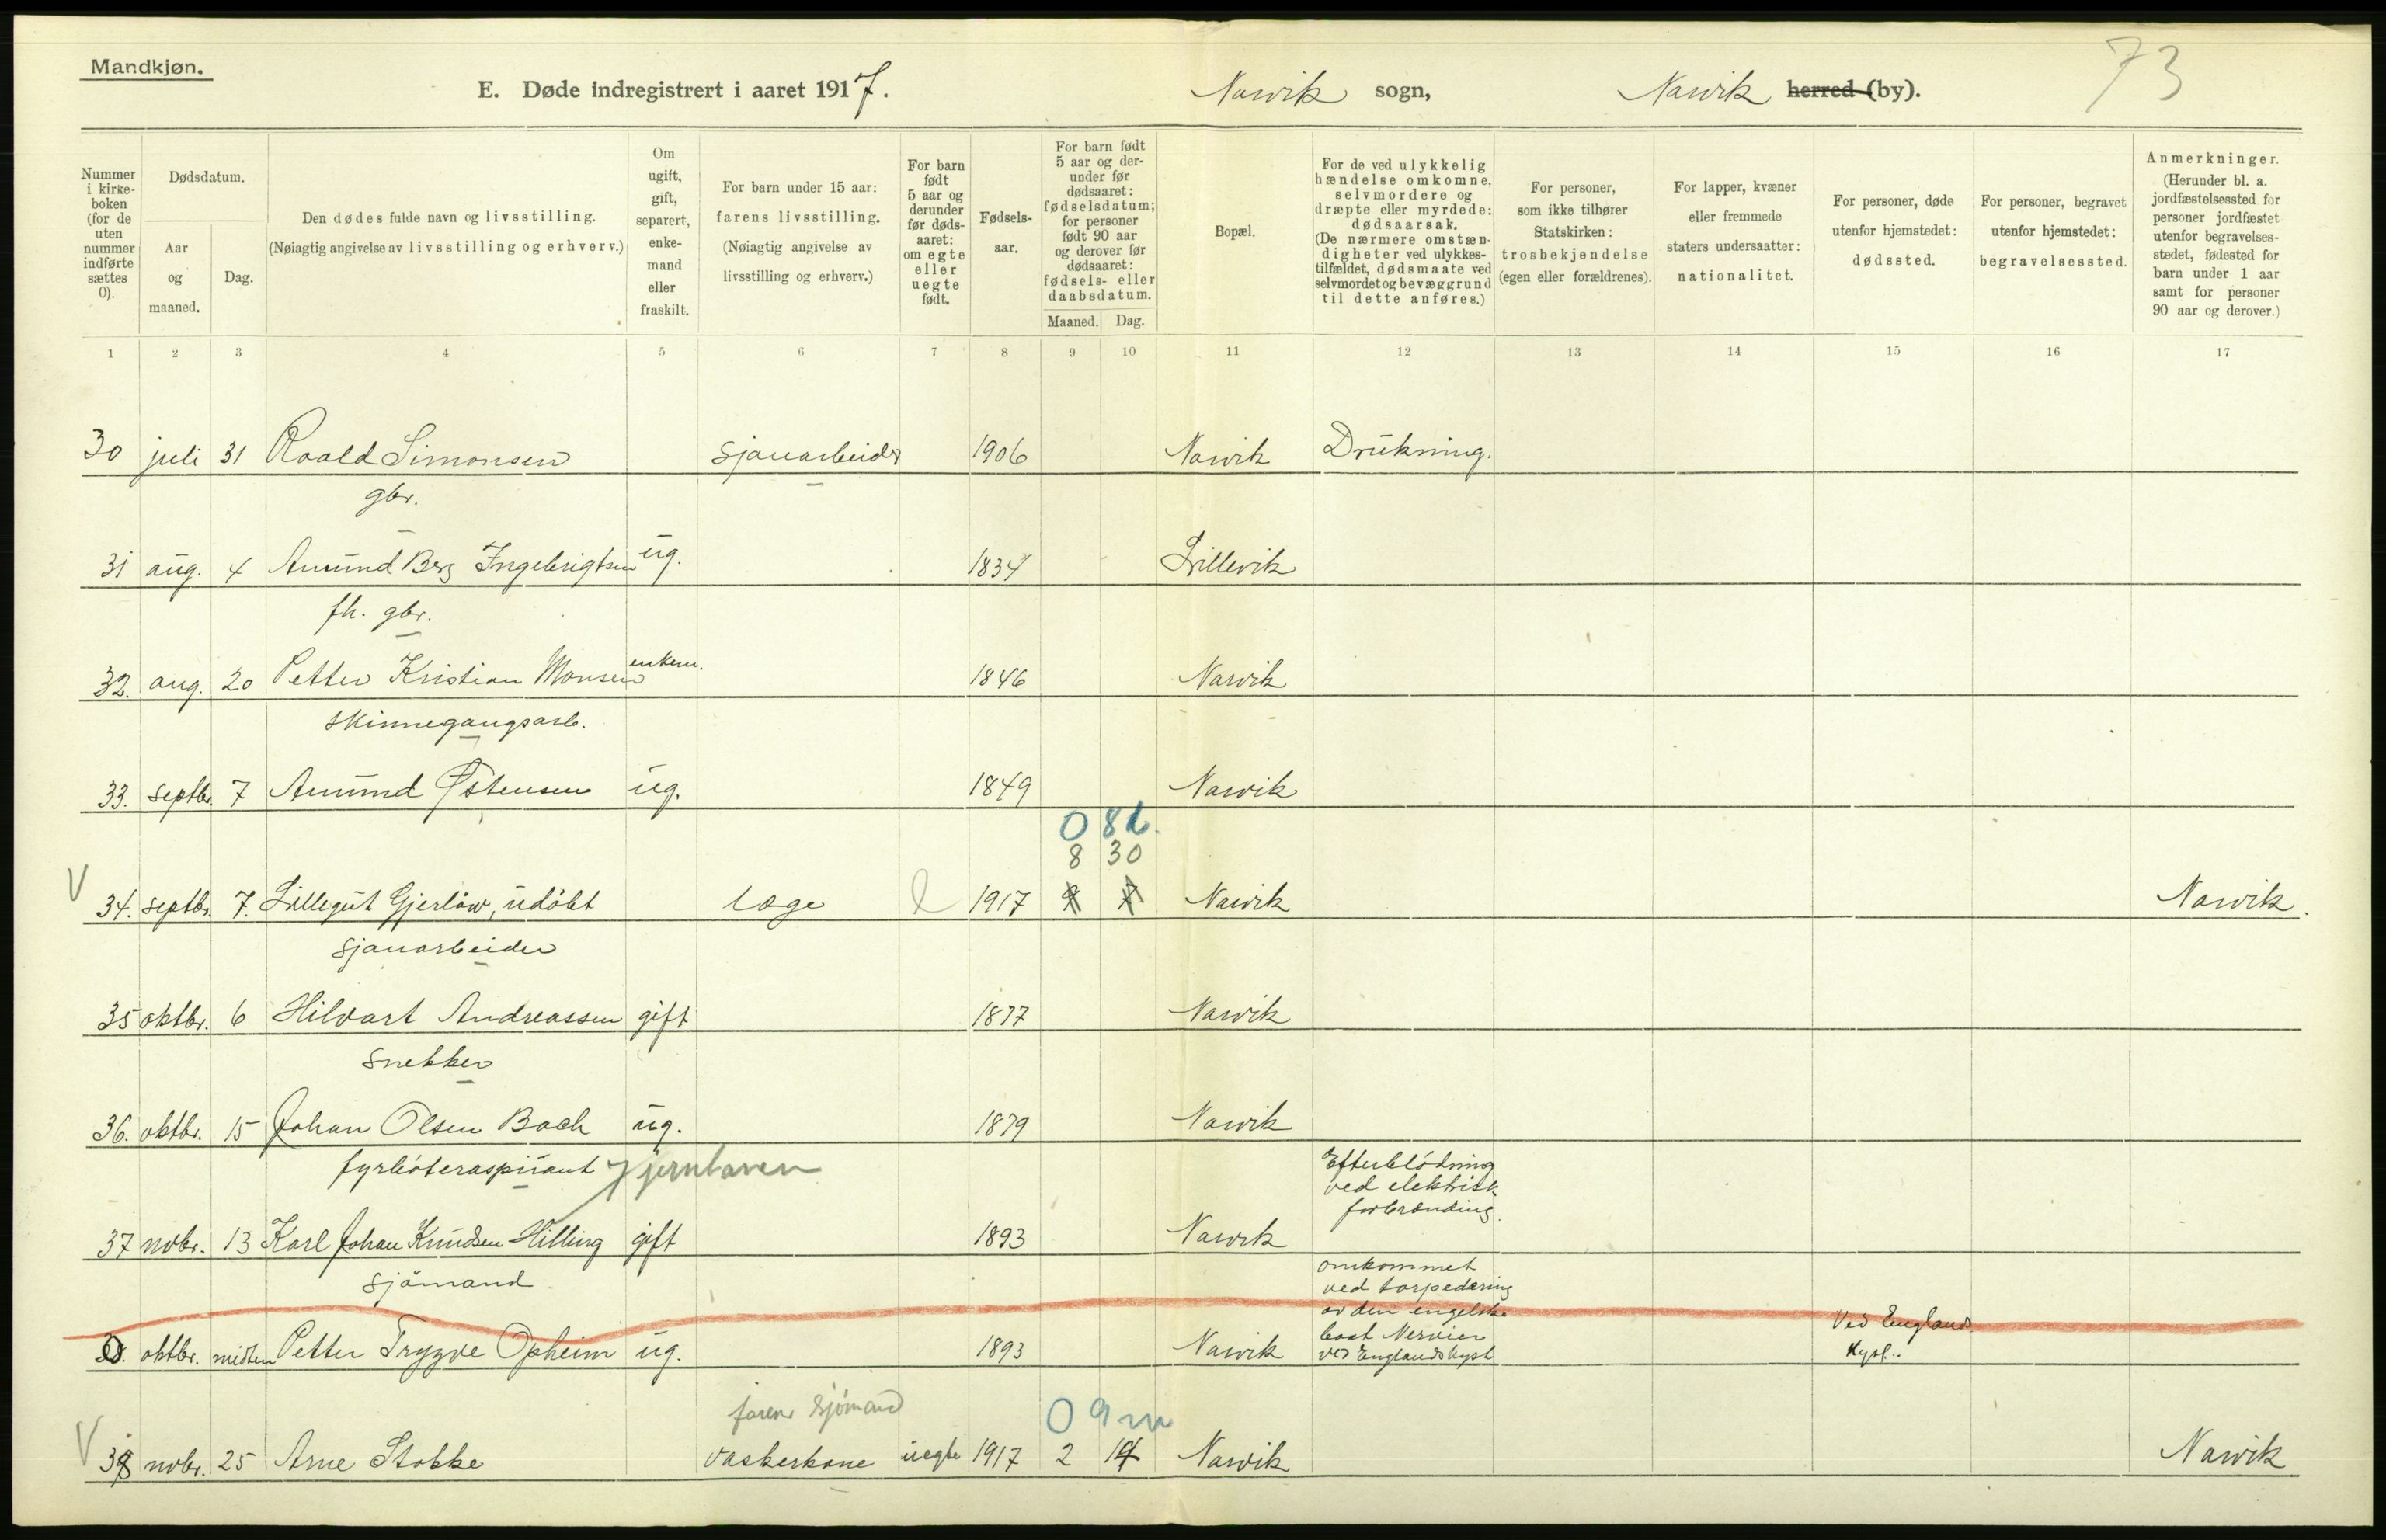 Mandkjøn.
73
E. Døde indregistrert i aaret 1917. Narvik sogn, Narvik herred (by).
Nummer i kirke-boken (for de uten nummer indførte sættes 0).
Dødsdatum.
Aar og maaned.
Dag.
Den dødes fulde navn og livsstilling.
(Nøiagtig angivelse av livsstilling og erhverv.)
Om ugift, gift, separert, enke-mand eller fraskilt.
For barn under 15 aar:
farens livsstilling.
(Nøiagtig angivelse av livsstilling og erhverv.)
For barn født 5 aar og derunder før døds-aaret: om egte eller uegte født.
Fødsels-aar.
For barn født 5 aar og der-under før dødsaaret: fødselsdatum; for personer født 90 aar og derover før dødsaaret: fødsels- eller daabsdatum.
Maaned. Dag.
Bopæl.
For de ved ulykkelig hændelse omkomne, selvmordere og dræpte eller myrdede: dødsaarsak. (De nærmere omstæn-digheter ved ulykkes-tilfældet, dødsmaate ved selvmordet og bevæggrund til dette anføres.)
For personer, som ikke tilhører Statskirken: trosbekjendelse (egen eller forældrenes).
For lapper, kvæner eller fremmede staters undersaatter: nationalitet.
For personer, døde utenfor hjemstedet: dødssted.
For personer, begravet utenfor hjemstedet: begravelsessted.
Anmerkninger. (Herunder bl. a. jordfæstelsessted for personer jordfæstet utenfor begravelses-stedet, fødested for barn under 1 aar samt for personer 90 aar og derover.)
1 2 3 4 5 6 7 8 9 10 11 12 13 14 15 16 17
30 juli 31 Roald Simonsen sjauarbeider 1906 Narvik Drukning.
gbr.
31 aug. 4 Amund Berg Ingebrigtsen ug. 1834 Lillevik
fh. gbr.
32. aug. 20 Petter Kristian Monsen enkem. 1846 Narvik
skinnegangsarb.
33. septbr. 7 Amund Østensen ug. 1849 Narvik
0 8
8 30
V 34. septbr. 7. Lillegut Gjerløw, udøbt læge 1917 Narvik Narvik.
sjauarbeider
35 oktbr. 6 Hilvart Andreassen gift 1877 Narvik
snekker
36. oktbr. 15 Johan Olsen Bach ug. 1879 Narvik
fyrbøteraspirant Jernbanen
Efterblödning
ved elektrisk
forbrænding.
37 novbr. 13 Karl Johan Knudsen Hilling gift 1893 Narvik
sjömand
omkommet
ved torpedering
av den engelske
baat Nervier
ved Englands kyst
Ved Englands
kyst.
oktbr. midten Petter Trygve Opheim ug. 1893 Narvik
faren sjömand
0 9 m
V 38 novbr. 25 Arne Stokke vaskerkone uegte 1917 2 14 Narvik Narvik